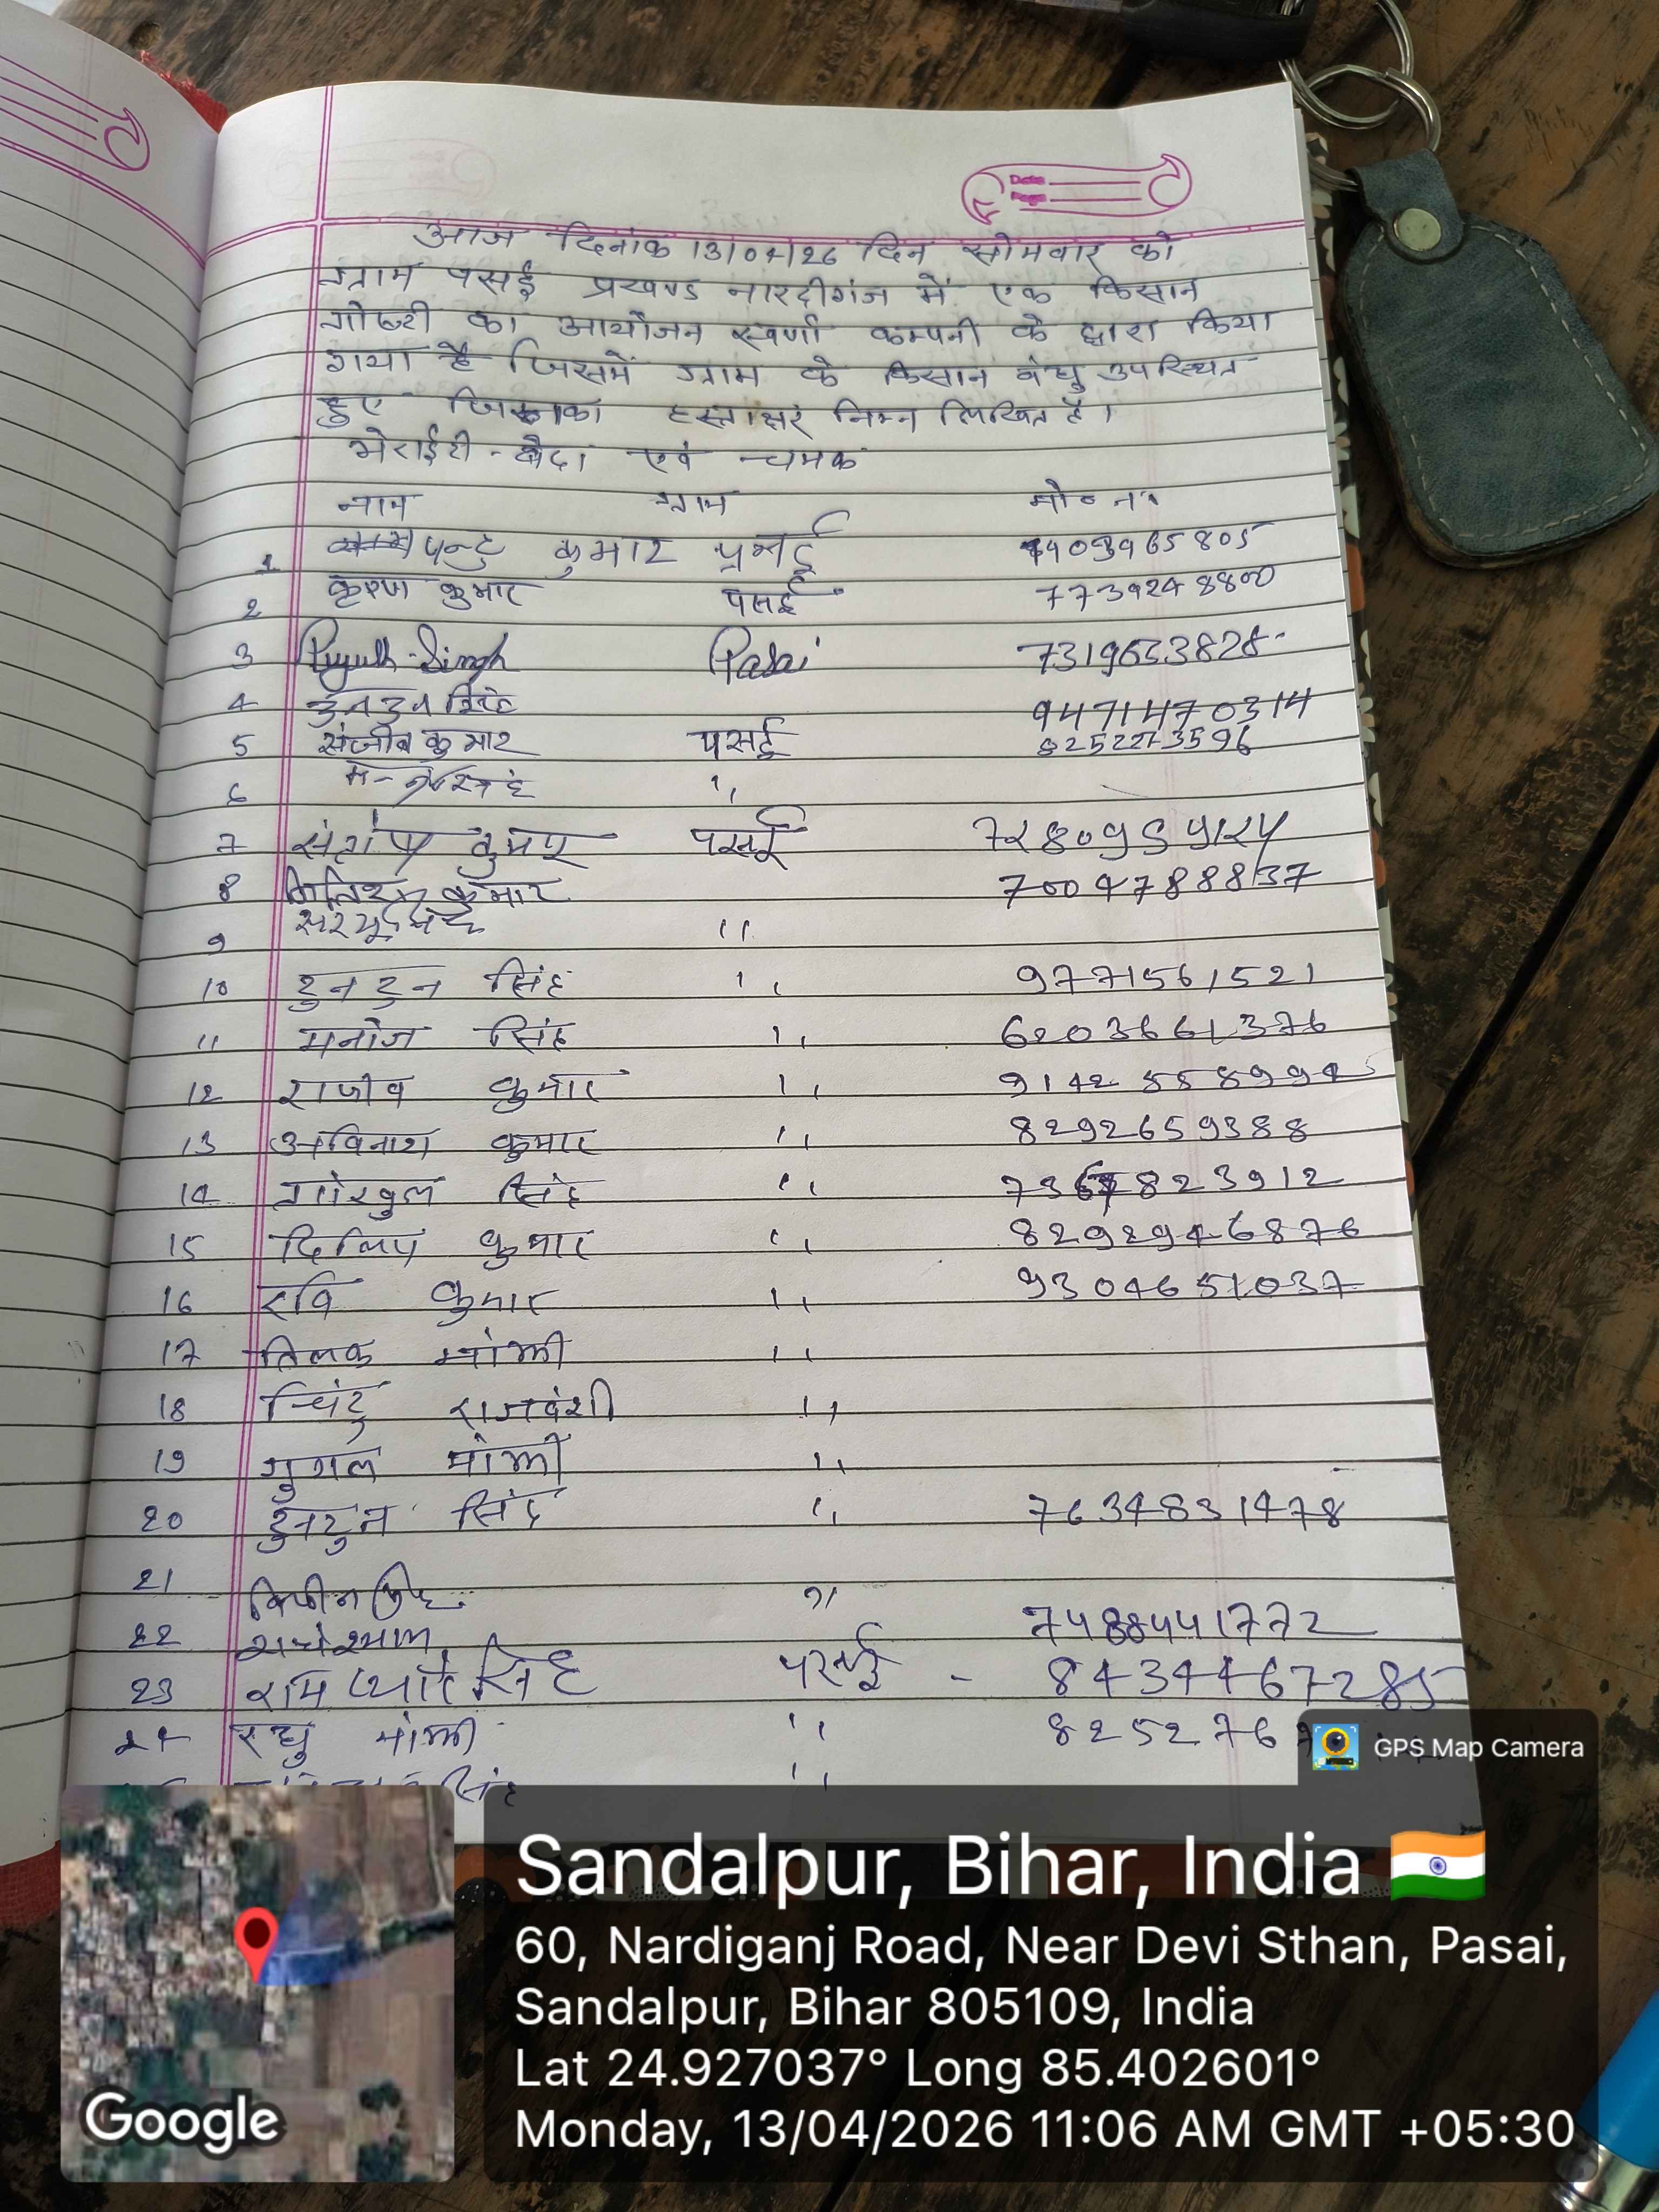 Date
Page
आज दिनांक 13/04/26 दिन सोमवार को
ग्राम पसई प्रखण्ड नारदीगंज में एक किसान
गोष्टी का आयोजन स्वर्णा कम्पनी के द्वारा किया
गया है जिसमें ग्राम के किसान बंधु उपस्थित
हुए जिसका हस्ताक्षर निम्न लिखित है।
भेराईटी - मैदा एवं चमक
नाम ग्राम मो० न०
1 पन्टु कुमार पसई 9403965805
2 कृष्ण कुमार पसई 7739248800
3 Piyush Singh Pasai 7319633828
4 टुनटुन सिंह 94714470314
5 संजीव कुमार पसई 8252273596
6 ,,
7 संतोष कुमार पसई 7280959124
8 कुमार 7004788837
9 सरयू सिंह ,,
10 टुनटुन सिंह ,, 9771561521
11 मनोज सिंह ,, 6203661376
12 राजीव कुमार ,, 9142
13 अविनाश कुमार ,, 8292659388
14 गोरखुल सिंह ,, 7367823912
15 दिलिप कुमार ,, 8292946876
16 रवि कुमार ,, 9304651037
17 तिलक मांझी ,,
18 चिंटु राजवंशी ,,
19 गुगल मांझी ,,
20 टुनटुन सिंह ,, 7634831478
21 विपीन सिंह ,,
22 राधेश्याम 7488441772
23 राम प्यारे सिंह पसई - 8434467285
24 रघु मांझी ,, 8252767
सिंह ,,
GPS Map Camera
Sandalpur, Bihar, India
60, Nardiganj Road, Near Devi Sthan, Pasai,
Sandalpur, Bihar 805109, India
Lat 24.927037° Long 85.402601°
Monday, 13/04/2026 11:06 AM GMT +05:30
Google